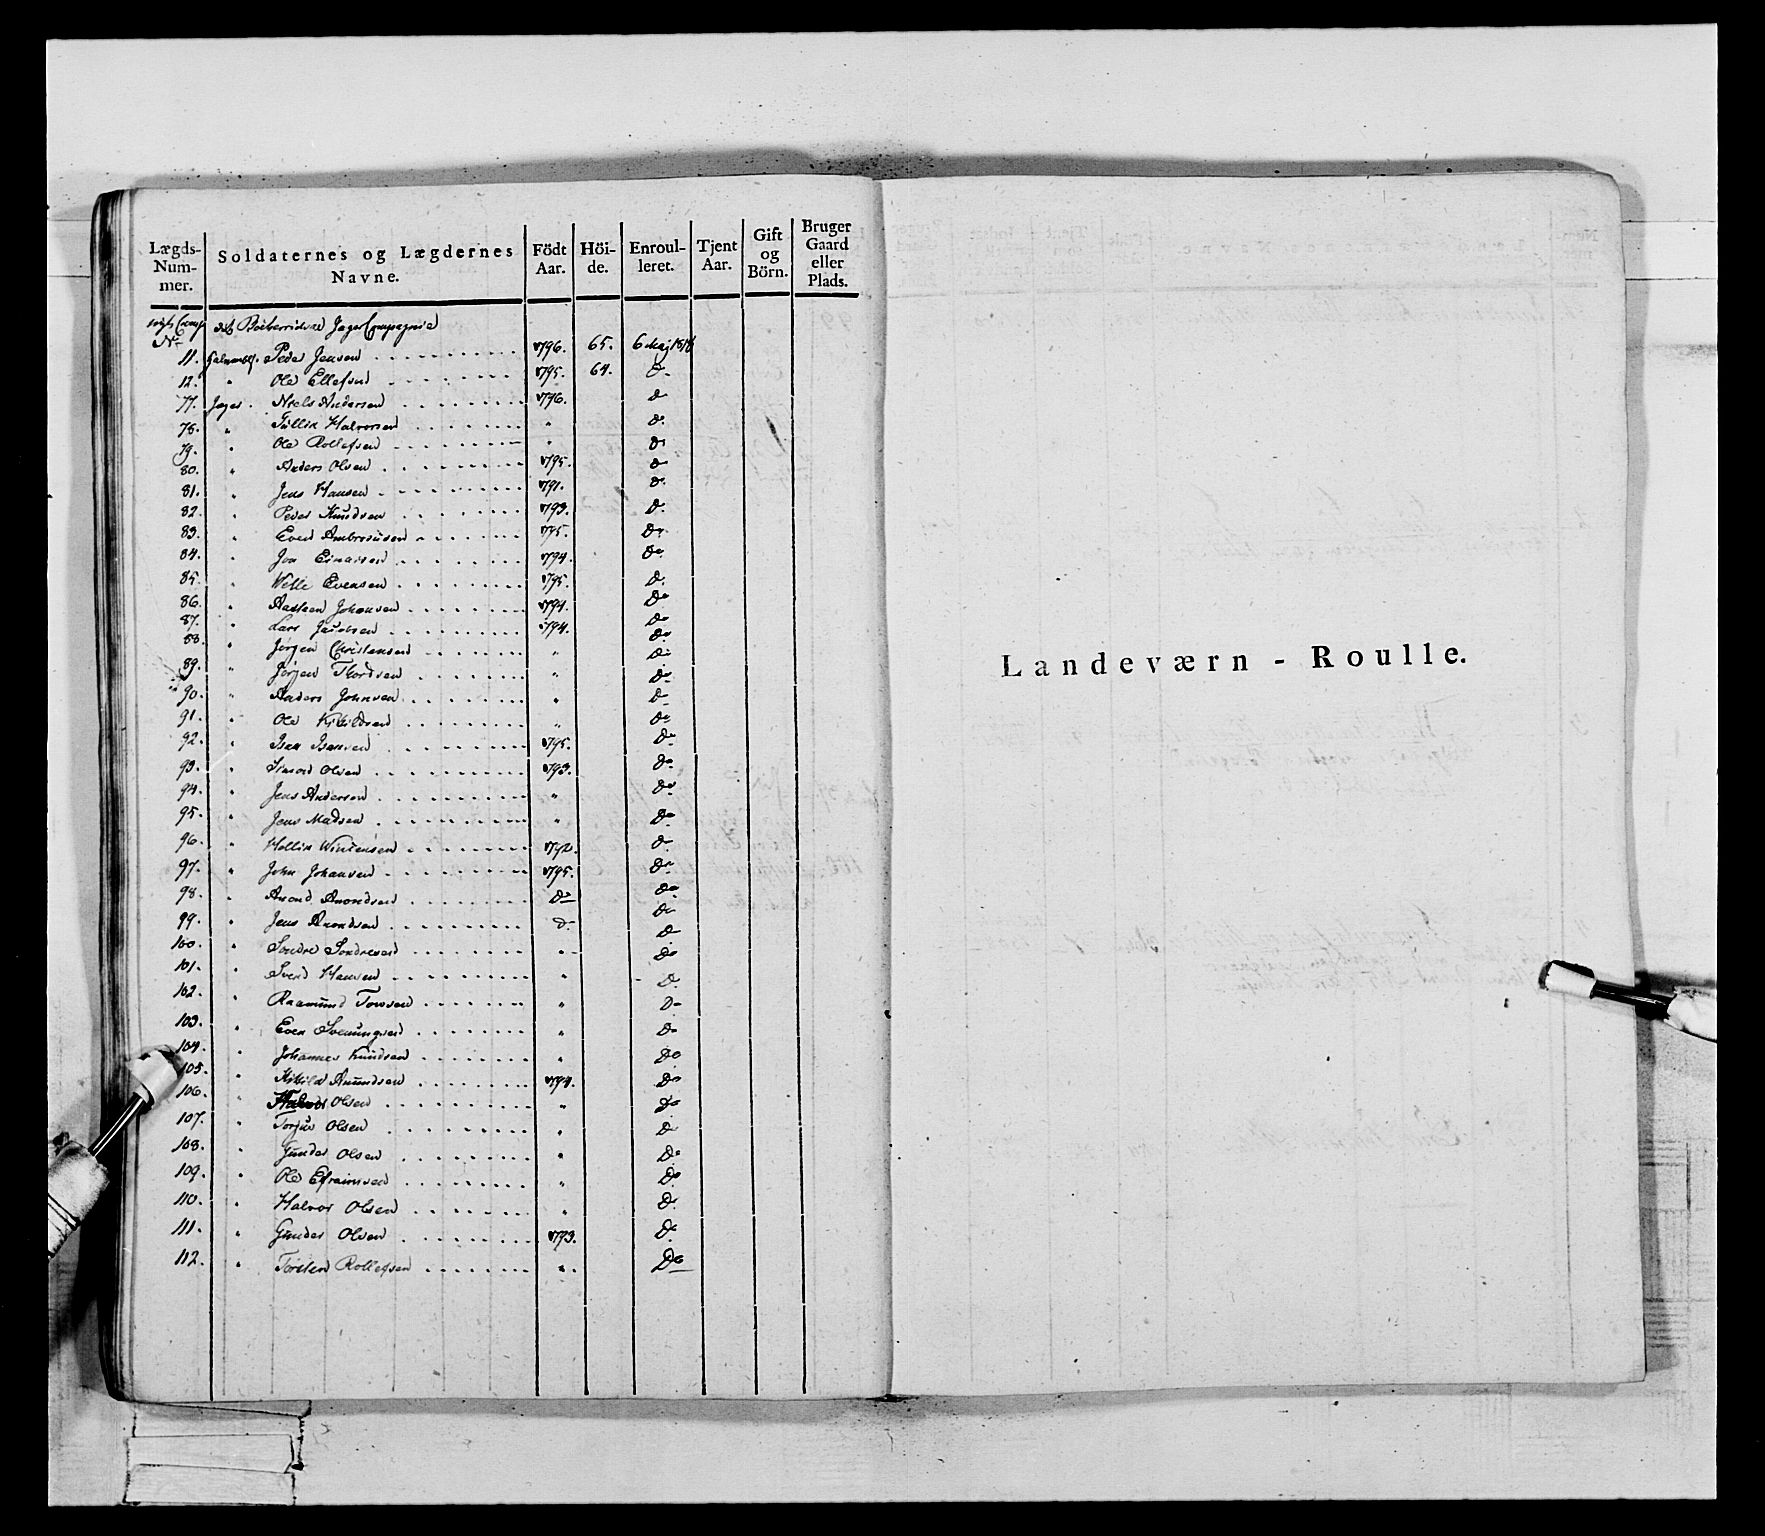 Lægds-Nummer. Soldaternes og Lægdernes Navne. Födt Aar. Höide. Enroulleret. Tjent Aar. Gift og Börn. Bruger Gaard eller Plads.
Comp det Jæger Compagnie
No
11. Peder Jensen 1796. 65. 6 Maj 1818
12. " Ole Ellefsen 1795. 64. Do
77. Jæger. Niels Andersen 1796. Do
78. " Tollin Halvorsen " Do
79. " Ole Rollefsen " Do
80. " Anders Olsen 1795. Do
81. " Jens Hansen 1791. Do
82. " Peder Knudsen 1793. Do
83. " Even Ambrosiusen 1795. Do
84. " Jon Einarsen 1794. Do
85. " Evensen 1795. Do
86. " Aasteen Johansen 1794. Do
87. " Lars Jacobsen 1794. Do
88. " Jørgen Christensen " Do
89. " Jørgen Thordsen " Do
90. " Anders Johnsen " Do
91. " Ole Kittilsen " Do
92. " Isak Isaksen 1795. Do
93. " Simon Olsen 1793. Do
94. " Jens Andersen " Do
95. " Jens Madsen " Do
96. " 1792. Do
97. " John Johansen 1795. Do
98. " Amond Amondsen Do Do
99. " Jens Amondsen Do Do
100. " Sondre Sondresen " Do
101. " Svend Hansen " Do
102. " Raamund " Do
103. " Even Svenungsen " Do
104. " Johannes Knudsen " Do
105. " Kittild Amundsen 1794. Do
106. " Halvor Olsen " Do
107. " Torjus Olsen " Do
108. " Gunder Olsen " Do
109. " Ole Efraimsen " Do
110. " Halvor Olsen " Do
111. " Gunder Olsen 1793. Do
112. " Torsten Rollefsen " Do
Landeværn - Roulle.